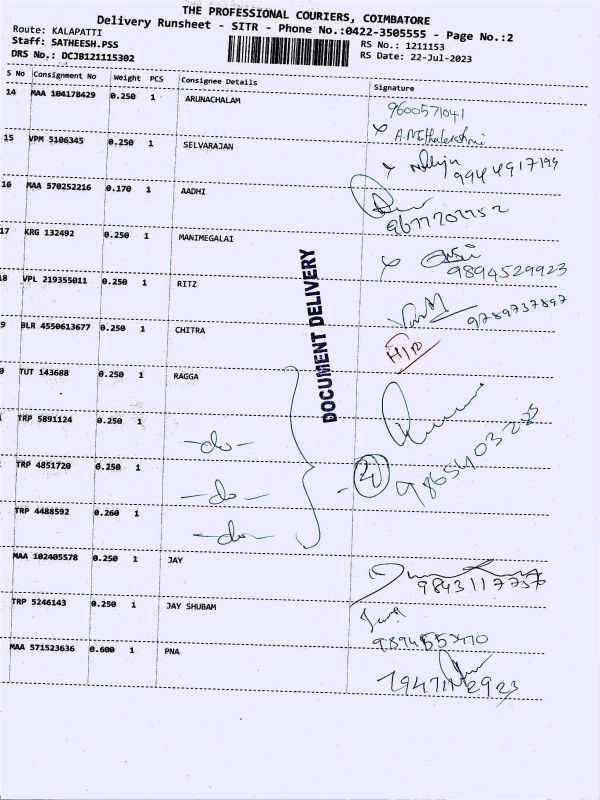 THE PROFESSIONAL COURIERS, COIMBATORE
Delivery Runsheet - SITR - Phone No.:0422-3505555 - Page No.:2
Route: KALAPATTI
RS No.: 1211153
Staff: SATHEESH.PSS
RS Date: 22-Jul-2023
DRS No.: DCJB121115302
S No Consignment No Weight PCS Consignee Details Signature
14 MAA 104178429 0.250 1 ARUNACHALAM 9600571041
15 VPM 5106345 0.250 1 SELVARAJAN 9944917199
16 MAA 570252216 0.170 1 AADHI
17 KRG 132492 0.250 1 MANIMEGALAI 9894529923
8 VPL 219355011 0.250 1 RITZ 9789737897
9 BLR 4550613677 0.250 1 CHITRA
0 TUT 143688 0.250 1 RAGGA
TRP 5891124 0.250 1 -do-
TRP 4851720 0.250 1 -do-
TRP 4488592 0.260 1 -do-
MAA 102405578 0.250 1 JAY
TRP 5246143 0.250 1 JAY SHUBAM
MAA 571523636 0.600 1 PNA
DOCUMENT DELIVERY